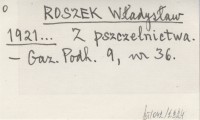 ROSZEK Władysław
1921... Z pszczelnictwa.
— Gaz. Podh. 9, nr 36.